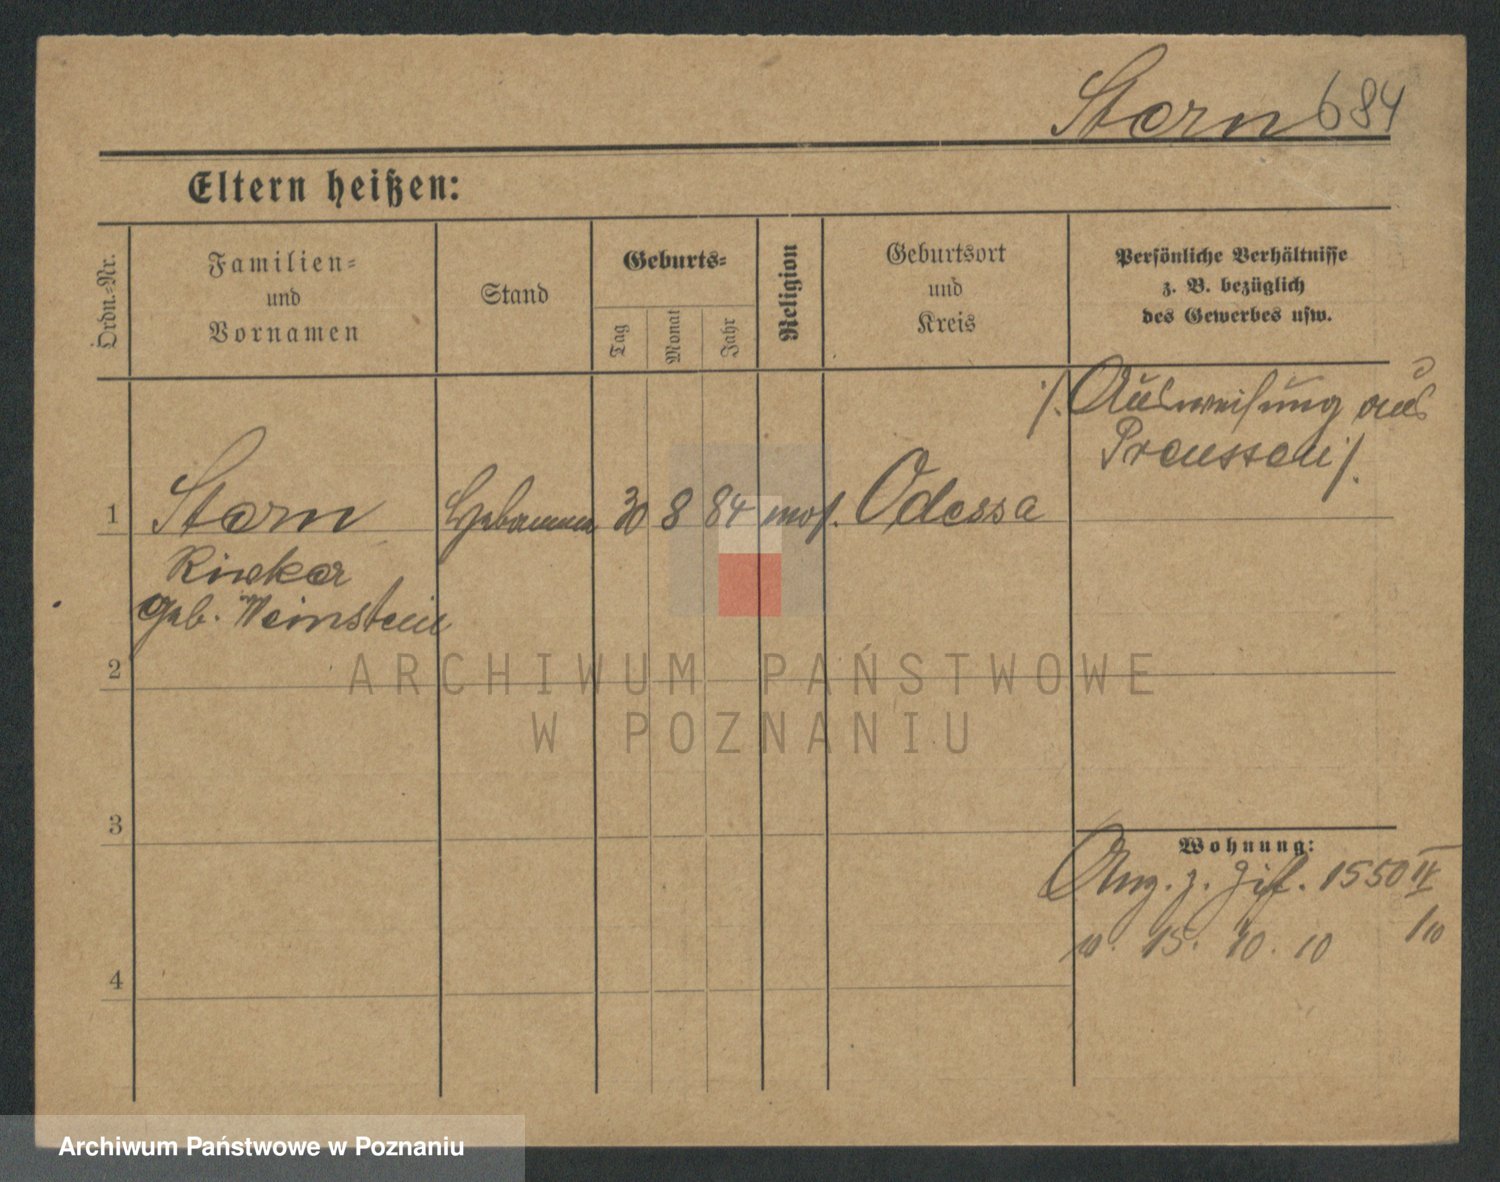 Stern 684
Eltern heißen:
Ordn.-Nr.
Familien-
und
Vornamen
Stand
Geburts-
Tag
Monat
Jahr
Religion
Geburtsort
und
Kreis
Persönliche Verhältnisse
z. B. bezüglich
des Gewerbes usw.
/. Ausweisung aus
Preussen /.
1 Stern Hebamme 30 8 84 mos. Odessa
geb. Weinstein
2
3
4
Wohnung:
Ang. z. Ziff. 1550 II
v. 15. 10. 10
ARCHIWUM PAŃSTWOWE
W POZNANIU
Archiwum Państwowe w Poznaniu